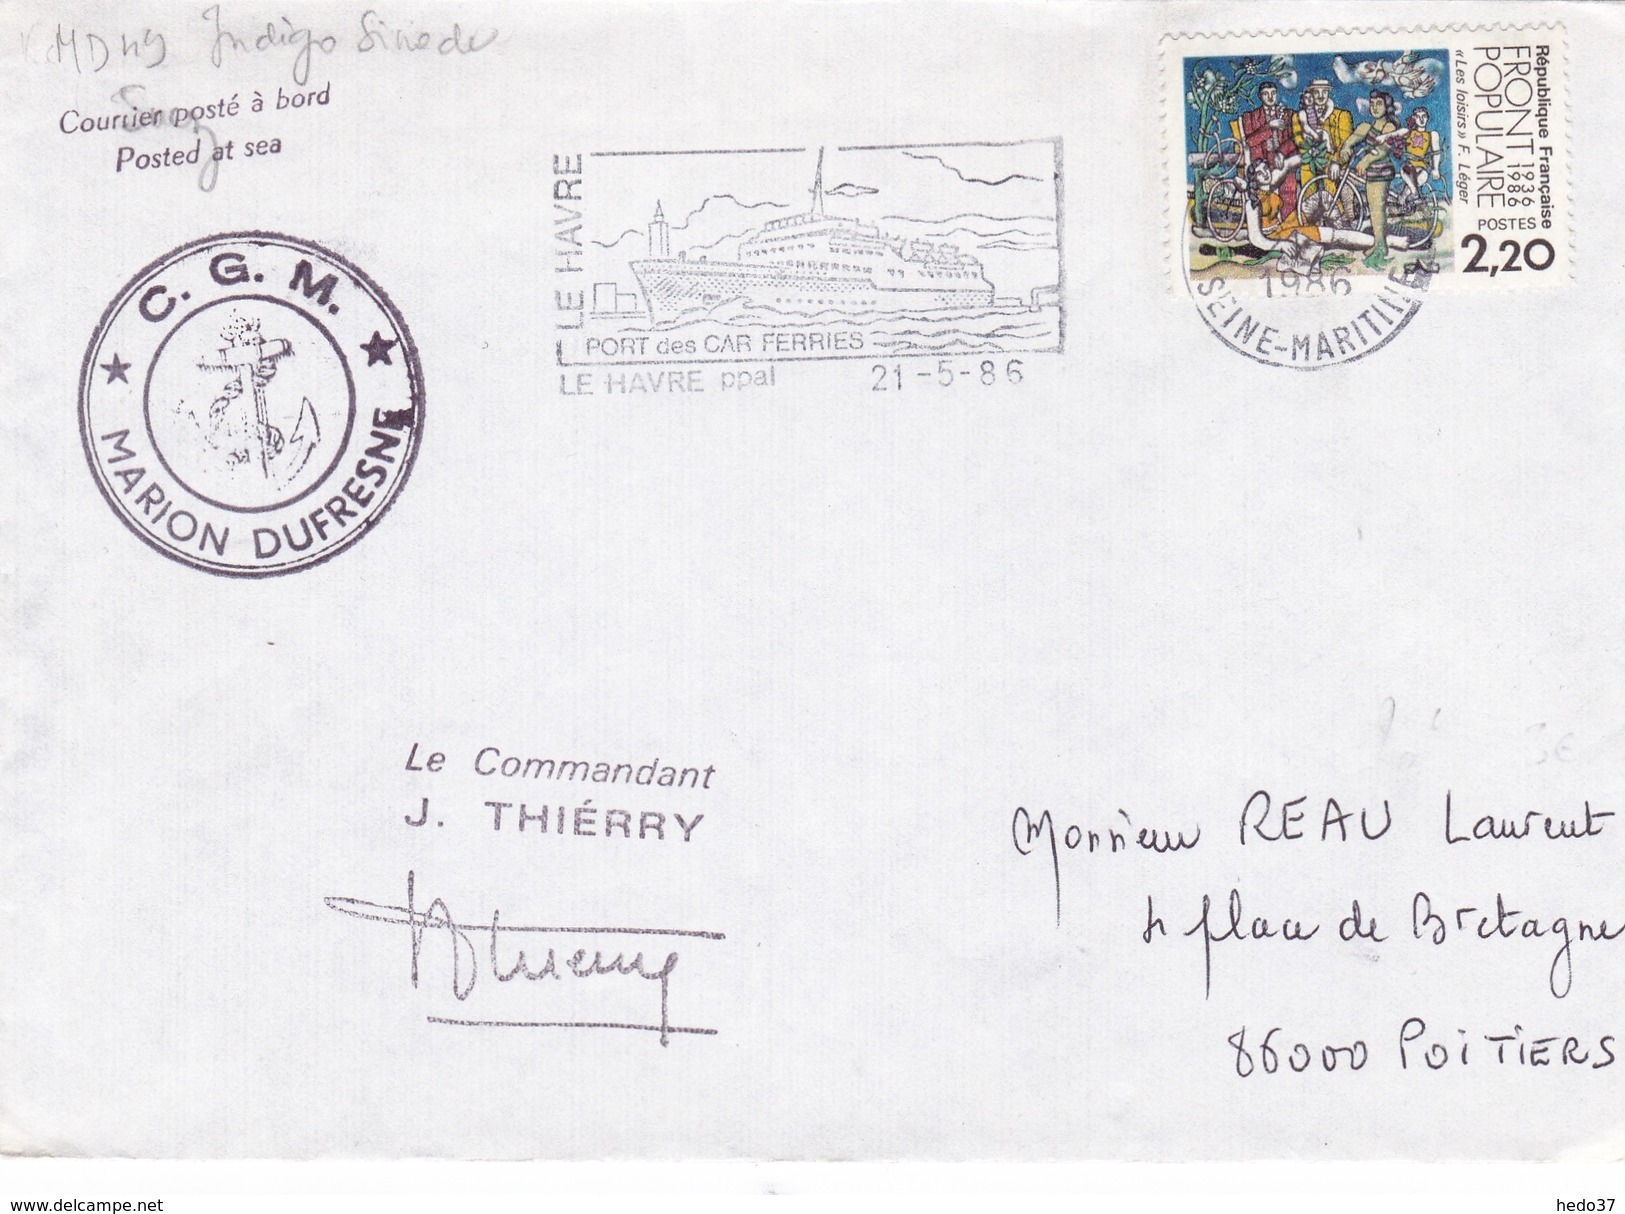 MD 49 Indigo
Courrier posté à bord
Posted at sea
C. G. M.
MARION DUFRESNE
LE HAVRE
PORT des CAR FERRIES
LE HAVRE ppal 21-5-86
République Française
FRONT 1936
POPULAIRE 1986
«Les loisirs» F. Léger
POSTES
2,20
1986
SEINE-MARITIME
Le Commandant
J. THIÉRRY
Monsieur REAU Laurent
4 place de Bretagne
86000 POITIERS
3€
hedo37